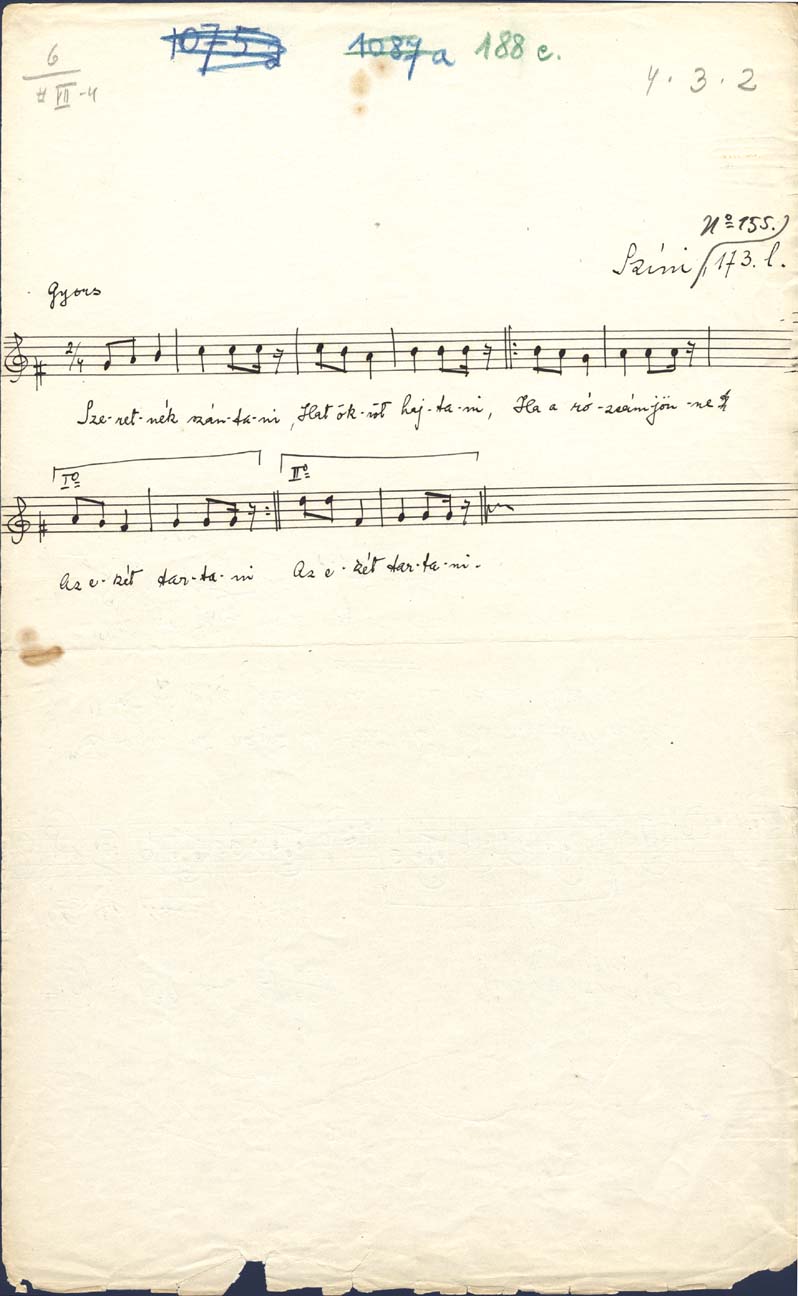 1075 a 1087 a 188 c.
6
# VII - 4
4 . 3 . 2
Nº 155.)
Szini 173. l.
Gyors
2/4
Sze-ret-nék szán-ta-ni, Hat ök-röt haj-ta-ni, Ha a ró-zsám jön-ne
Iº IIº
Az e-két tar-ta-ni Az e-két tar-ta-ni.